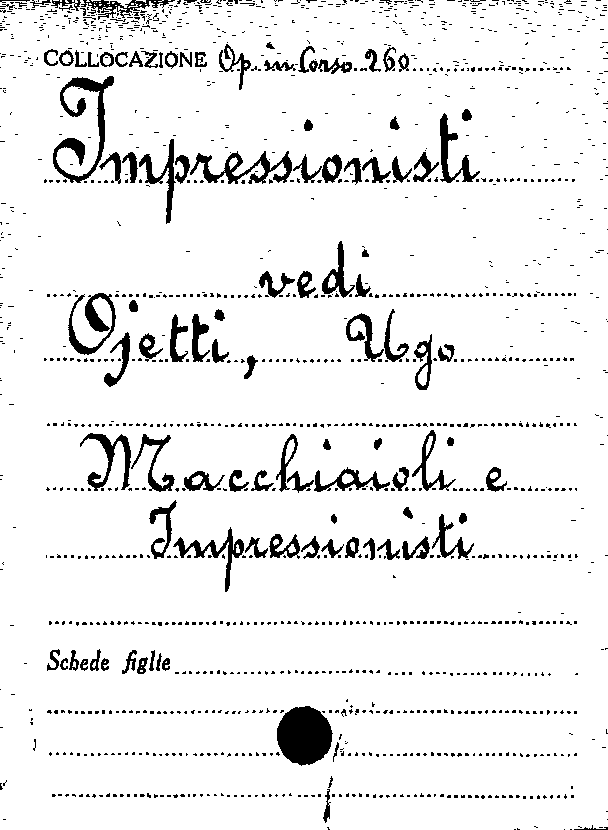 COLLOCAZIONE Op. in Corso 260
Impressionisti
vedi
Ojetti, Ugo
Macchiaioli e
Impressionisti.
Schede figlie